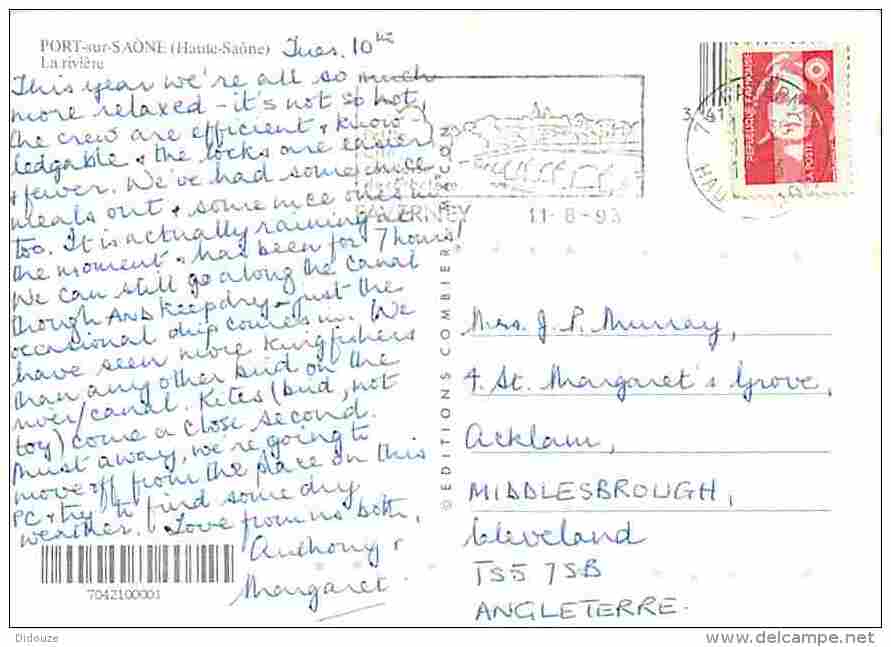 PORT-sur-SAÔNE (Haute-Saône)
La rivière
Tues. 10th
This year we're all so much
more relaxed – it's not so hot,
the crew are efficient & know
ledgable & the locks are easier
& fewer. We've had some nice
meals out & some nice ones in
too. It is actually raining at
the moment & has been for 7 hours!
We can still go along the canal
though AND keep dry – just the
occasional drip comes in. We
have seen more kingfishers
than any other bird on the
river/canal. Kites (bird, not
toy) come a close second.
Must away, we're going to
move off from the place on this
PC & try to find some dry
weather. Love from us both,
Anthony &
Margaret.
7042100001
© EDITIONS COMBIER MACON
FAVERNEY 11-8-93
REPUBLIQUE FRANÇAISE
LA POSTE
Mrs. J. P. Murray,
4. St. Margaret's Grove,
Acklam,
MIDDLESBROUGH,
Cleveland
TS5 7SB
ANGLETERRE.
Didouze
www.delcampe.net